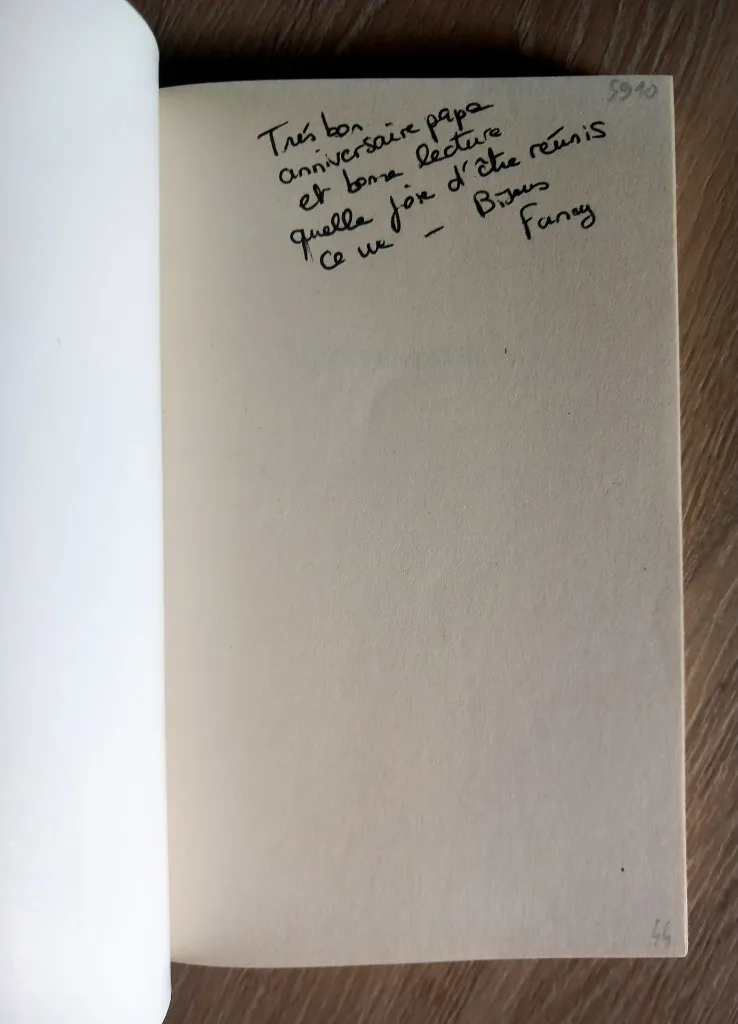 5910
Très bon
anniversaire papa
et bonne lecture
quelle joie d'être réunis
ce we — Bisous
Fanny
44